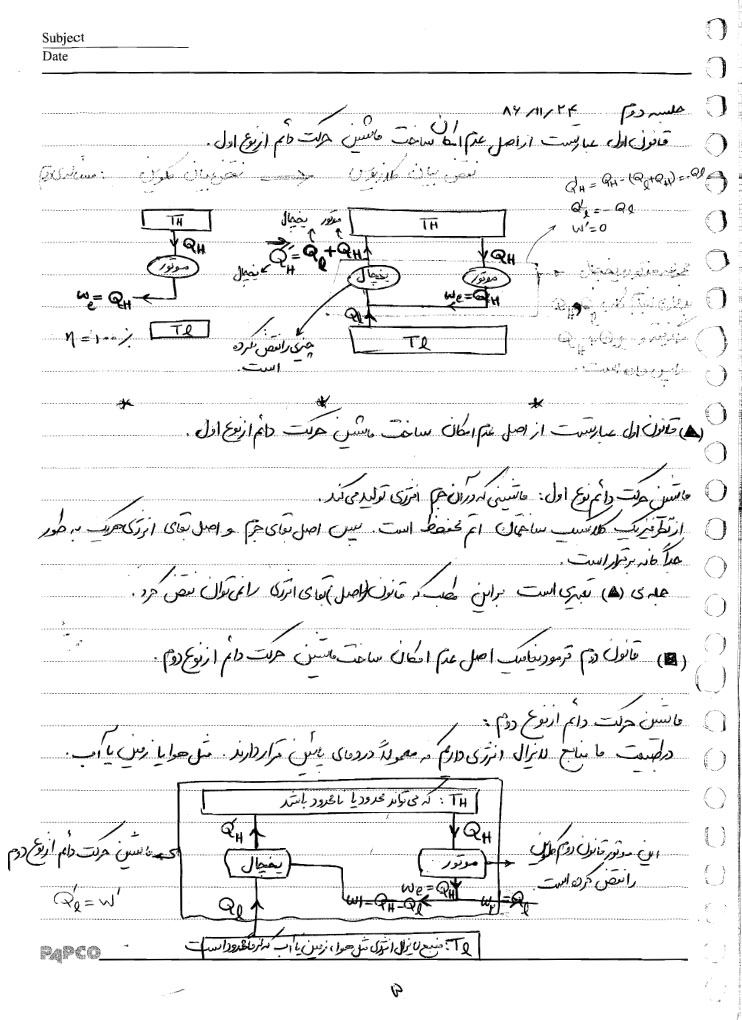 Subject
Date
جلسه دوم ۸۶/۱۱/۲۴
قانون اول عبارتست از اصل عدم امکان ساخت ماشین حرکت دائم از نوع اول.
نقض بیان کلازیوس نقض بیان کلوین :
Q'H = QH - (Ql + QH) = -Ql
Q'l = -Ql
W' = 0
TH
QH
موتور
We = QH
Tl
η = ۱۰۰٪
یخچال موتور
Q'H = Ql + QH
یخچال
TH
QH
یخچال
موتور
We = QH
Ql
Tl
چیزی را نقض نکرده
است.
* * *
(▲) قانون اول عبارتست از اصل عدم امکان ساخت ماشین حرکت دائم از نوع اول.
ماشین حرکت دائم نوع اول: ماشینی که در آن جرم انرژی تولید می‌کند.
از نظر فیزیک کلاسیک ساختمان اتم محفوظ است. پس اصل بقای جرم و اصل بقای انرژی هریک به طور
جداگانه برقرار است.
جمله‌ی (▲) تعبیری است براین مطلب که قانون (اصل) بقای انرژی را نمی‌توان نقض کرد.
(■) قانون دوم ترمودینامیک اصل عدم امکان ساخت ماشین حرکت دائم از نوع دوم.
ماشین حرکت دائم از نوع دوم:
در طبیعت ما منابع لایزال انرژی داریم که معمولاً در دمای پائین قرار دارند. مثل هوا یا زمین یا آب.
TH : که می‌تواند محدود یا نامحدود باشد
Q'H
QH
یخچال
موتور
ماشین حرکت دائم از نوع دوم
این موتور قانون دوم کلوین
را نقض کرده است
Q'l = W'
We = QH
W = QH - Ql
W' = Ql
Ql
Tl : منبع لایزال انرژی مثل هوا، زمین یا آب که نامحدود است
PAPCO
۳